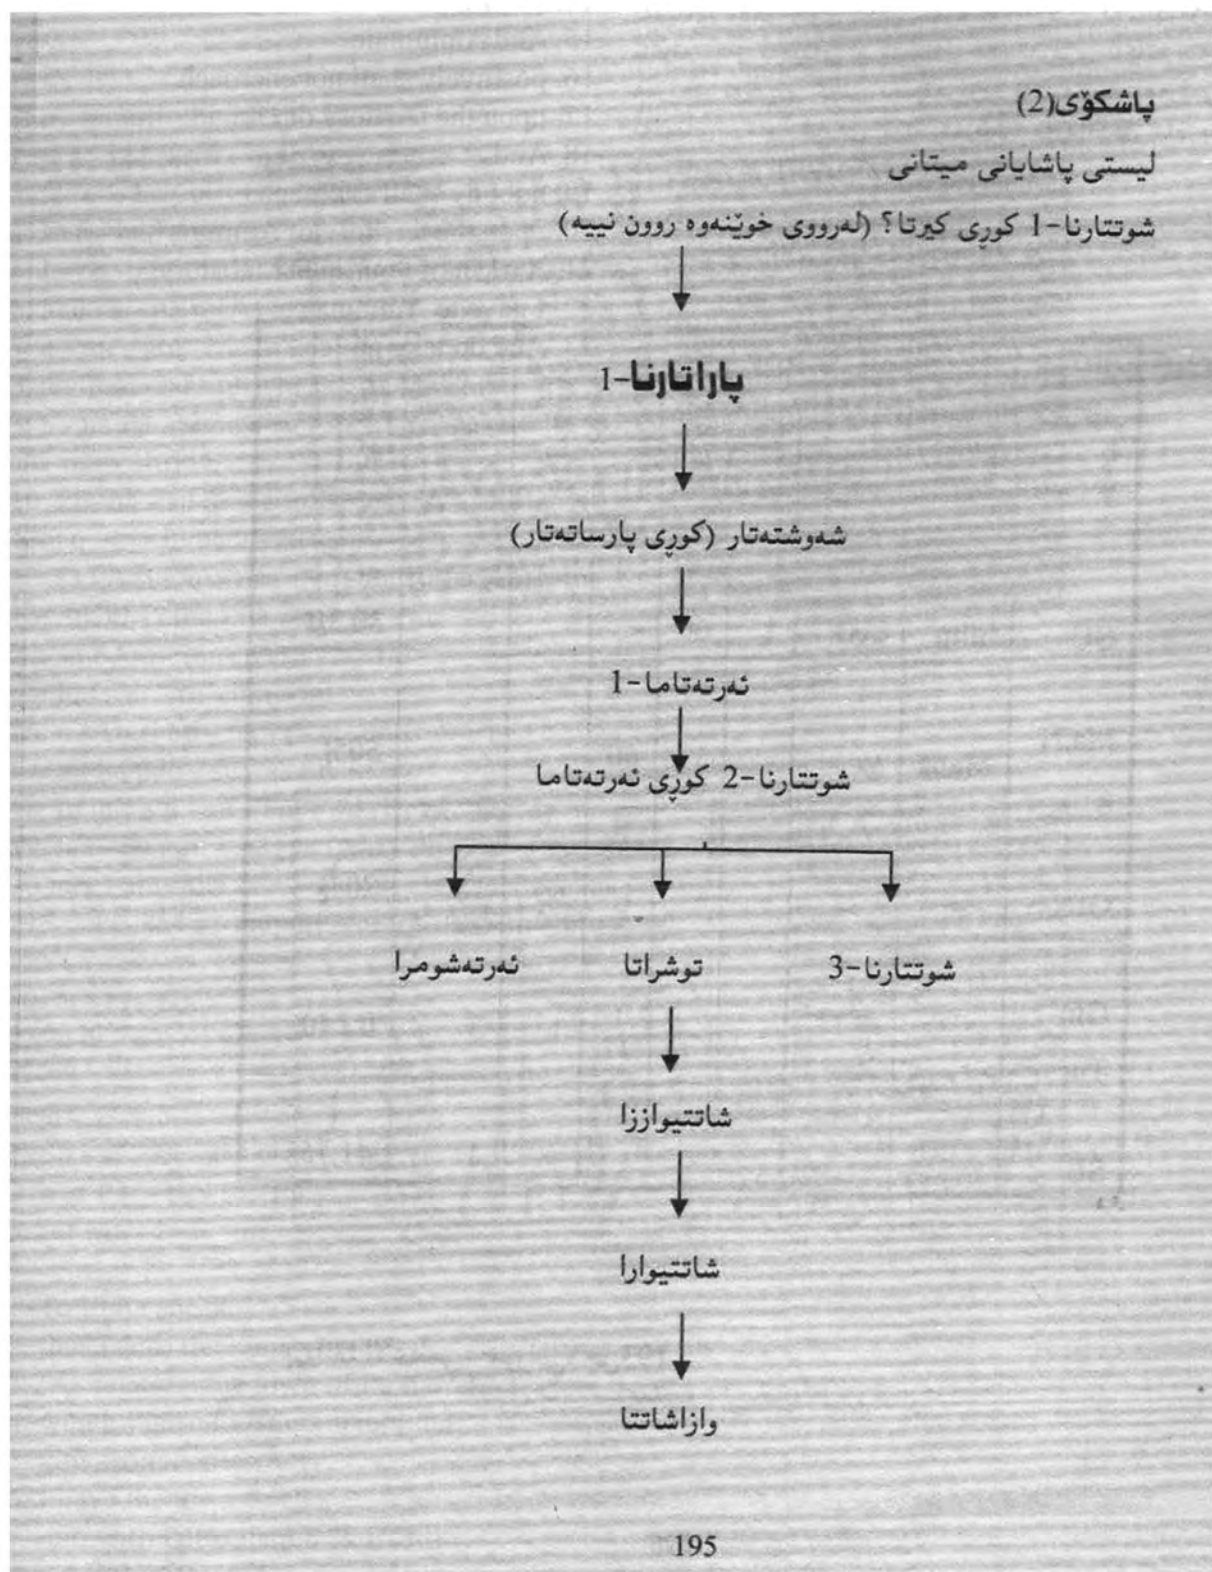 پاشکۆی(2)
لیستی پاشایانی میتانی
شوتتارنا-1 کوڕی کیرتا؟ (لەرووی خوێنەوە روون نییە)
پاراتارنا-1
شەوشتەتار (کوڕی پارساتەتار)
ئەرتەتاما-1
شوتتارنا-2 کوڕی ئەرتەتاما
شوتتارنا-3 توشراتا ئەرتەشومرا
شاتتیواززا
شاتتیوارا
وازاشاتتا
195